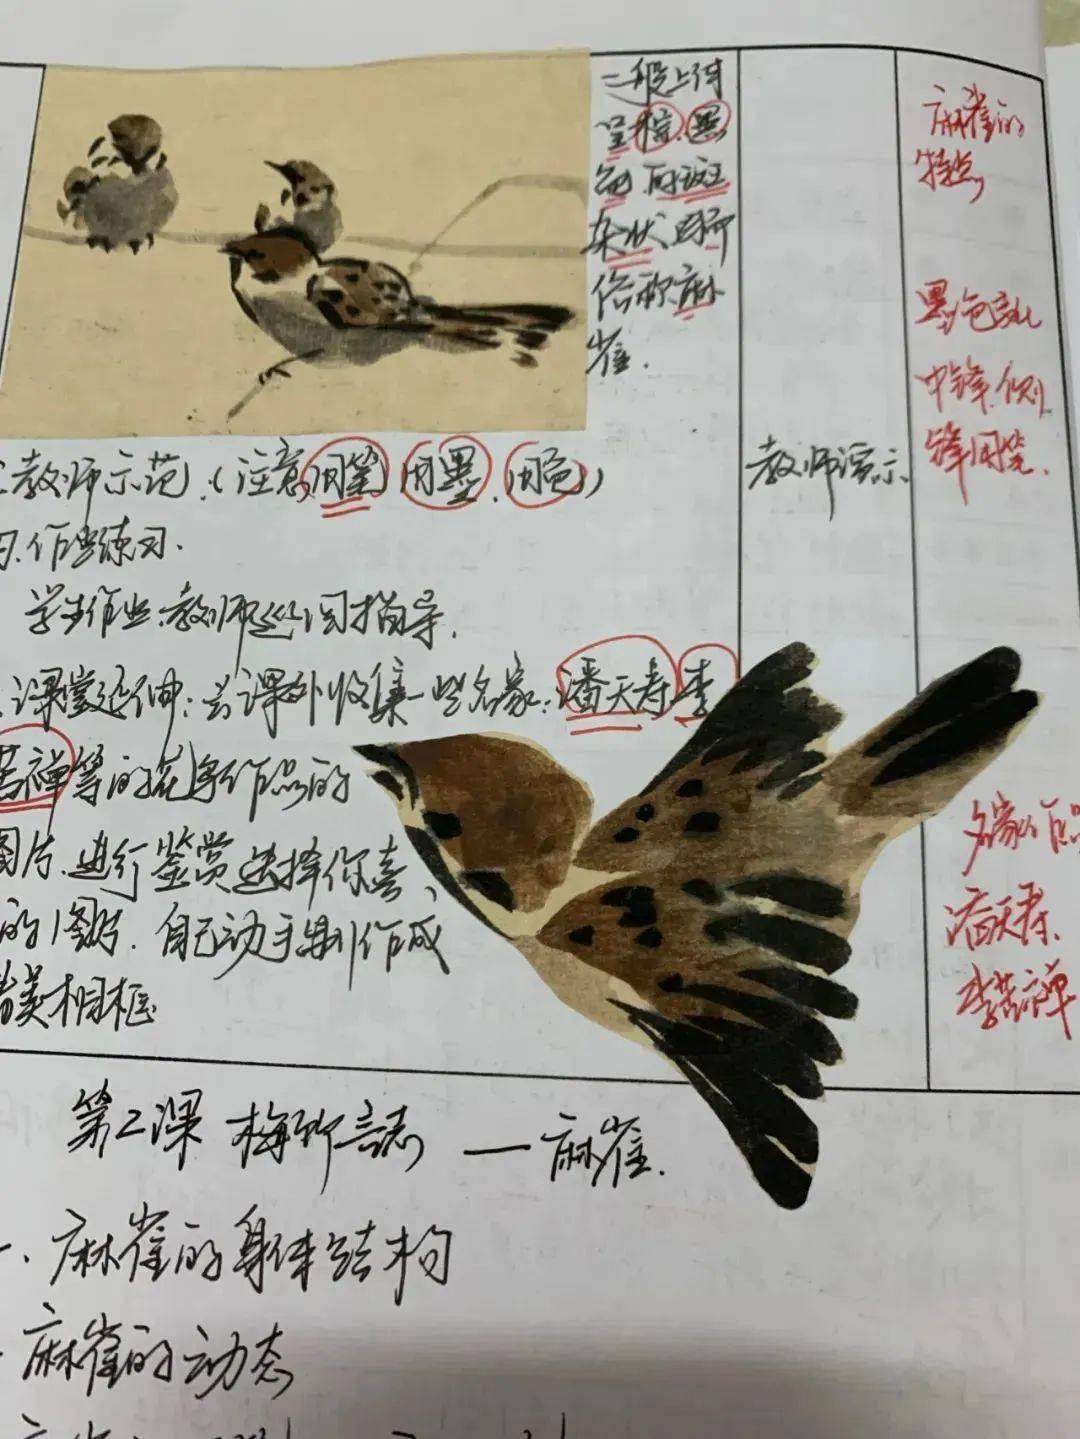 一般上体
呈棕、黑
色的斑
杂状,因而
俗称麻
雀.
麻雀的
特点
墨色变化
中锋、侧
锋用笔.
教师演示
教师示范.(注意用笔、用墨、用色)
作业练习.
学生作业.教师巡回指导.
课堂延伸:去课外收集一些名家:潘天寿、李
苦禅等的花鸟作品的
图片.进行鉴赏选择你喜
的图片.自己动手制作成
精美相框
名家作品
潘天寿.
李苦禅
第2课 梅所言志 — 麻雀.
一、麻雀的身体结构
麻雀的动态